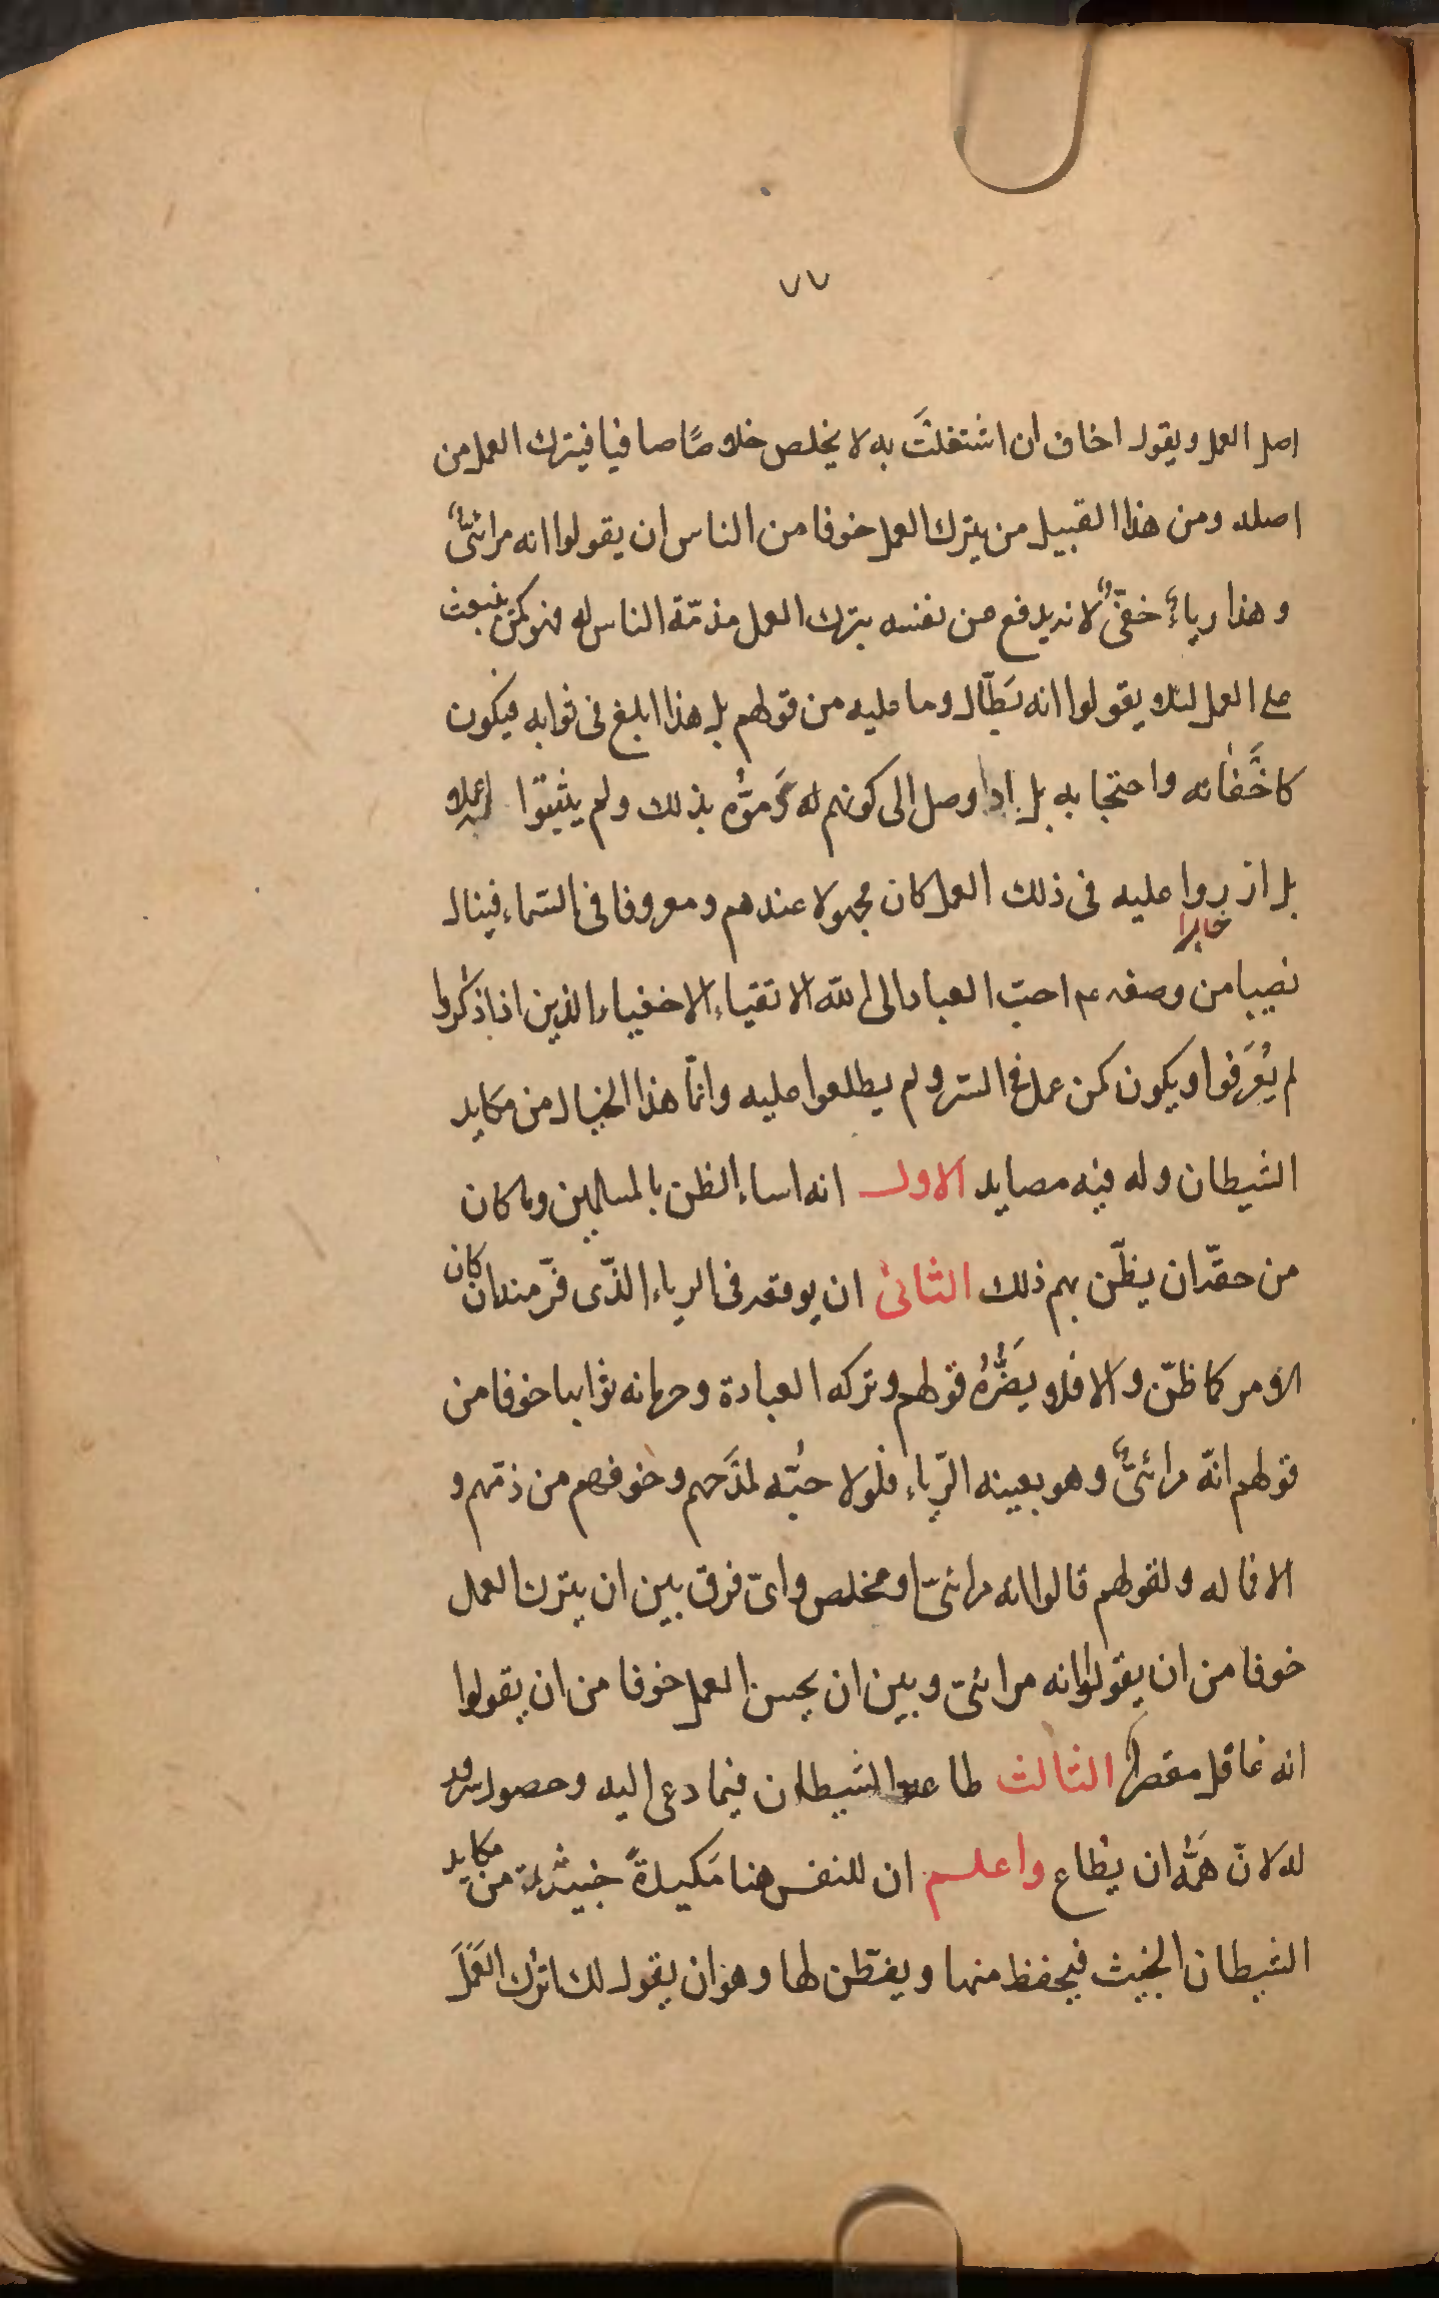 ٧٧
اصل العمل ويقول اخاف ان اشتغلتَ به لا يخلص خلاصًا صافيا فيترك العمل من
اصله ومن هذا القبيل من يترك العمل خوفا من الناس ان يقولوا انه مرائىٌّ
وهذا رياءٌ خفىٌّ لانه يدفع عن نفسه بترك العمل مذمّة الناس له فهو كمن يبعث
على العمل لئلا يقولوا انه بَطّال وما عليه من قولهم بل هذا ابلغ فى ثوابه فيكون
كاخَّفائه واحتجابه بل اذا وصل الى كونهم له ذموّه بذلك ولم يثبتوا له عملا
بل ازروا عليه فى ذلك العمل كان مجهولا عندهم ومعروفا فى السّماء فينال
نصيبا من وصفه عم احبّ العباد الى اللّه الاتقياء الاخفياء الذين اذا ذُكروا
لم يُعرَفوا ويكون كمن عمل فى السّر ولم يطلعوا عليه وانّما هذا الخيال من مكايد
الشيطان وله فيه مصايد الاول انه اساء الظن بالمسلمين وما كان
من حقّه ان يظّن بهم ذلك الثانى ان يوقعه فى الرياء الذّى فرّ منه ان كان
الامر كما ظنّ والا فلا يضَرُّهُ قولهم وتركه العبادة وحرمانه ثوابها خوفا من
قولهم انّه مرائىٌّ وهو بعينه الرّياء فلولا حبُّه لمدَحهم وخوفهم من ذمّهم و
الا فما له ولقولهم قالوا انه مرائىّ او مخلص واىّ فرق بين ان يترك العمل
خوفا من ان يقولوا انه مرائىّ وبين ان يحسن العمل خوفا من ان يقولوا
انه غافل مقصر الثالث طاعة الشيطان فيما دعى اليه وحصول سروره
له لانّ همَّهُ ان يُطاع واعلم ان للنفس هنا مَكيدةً خبيثة من مكايد
الشيطان الخبيث فيحفظ منها ويفطّن لها وهو ان يقول لك اترك العَمَلَ